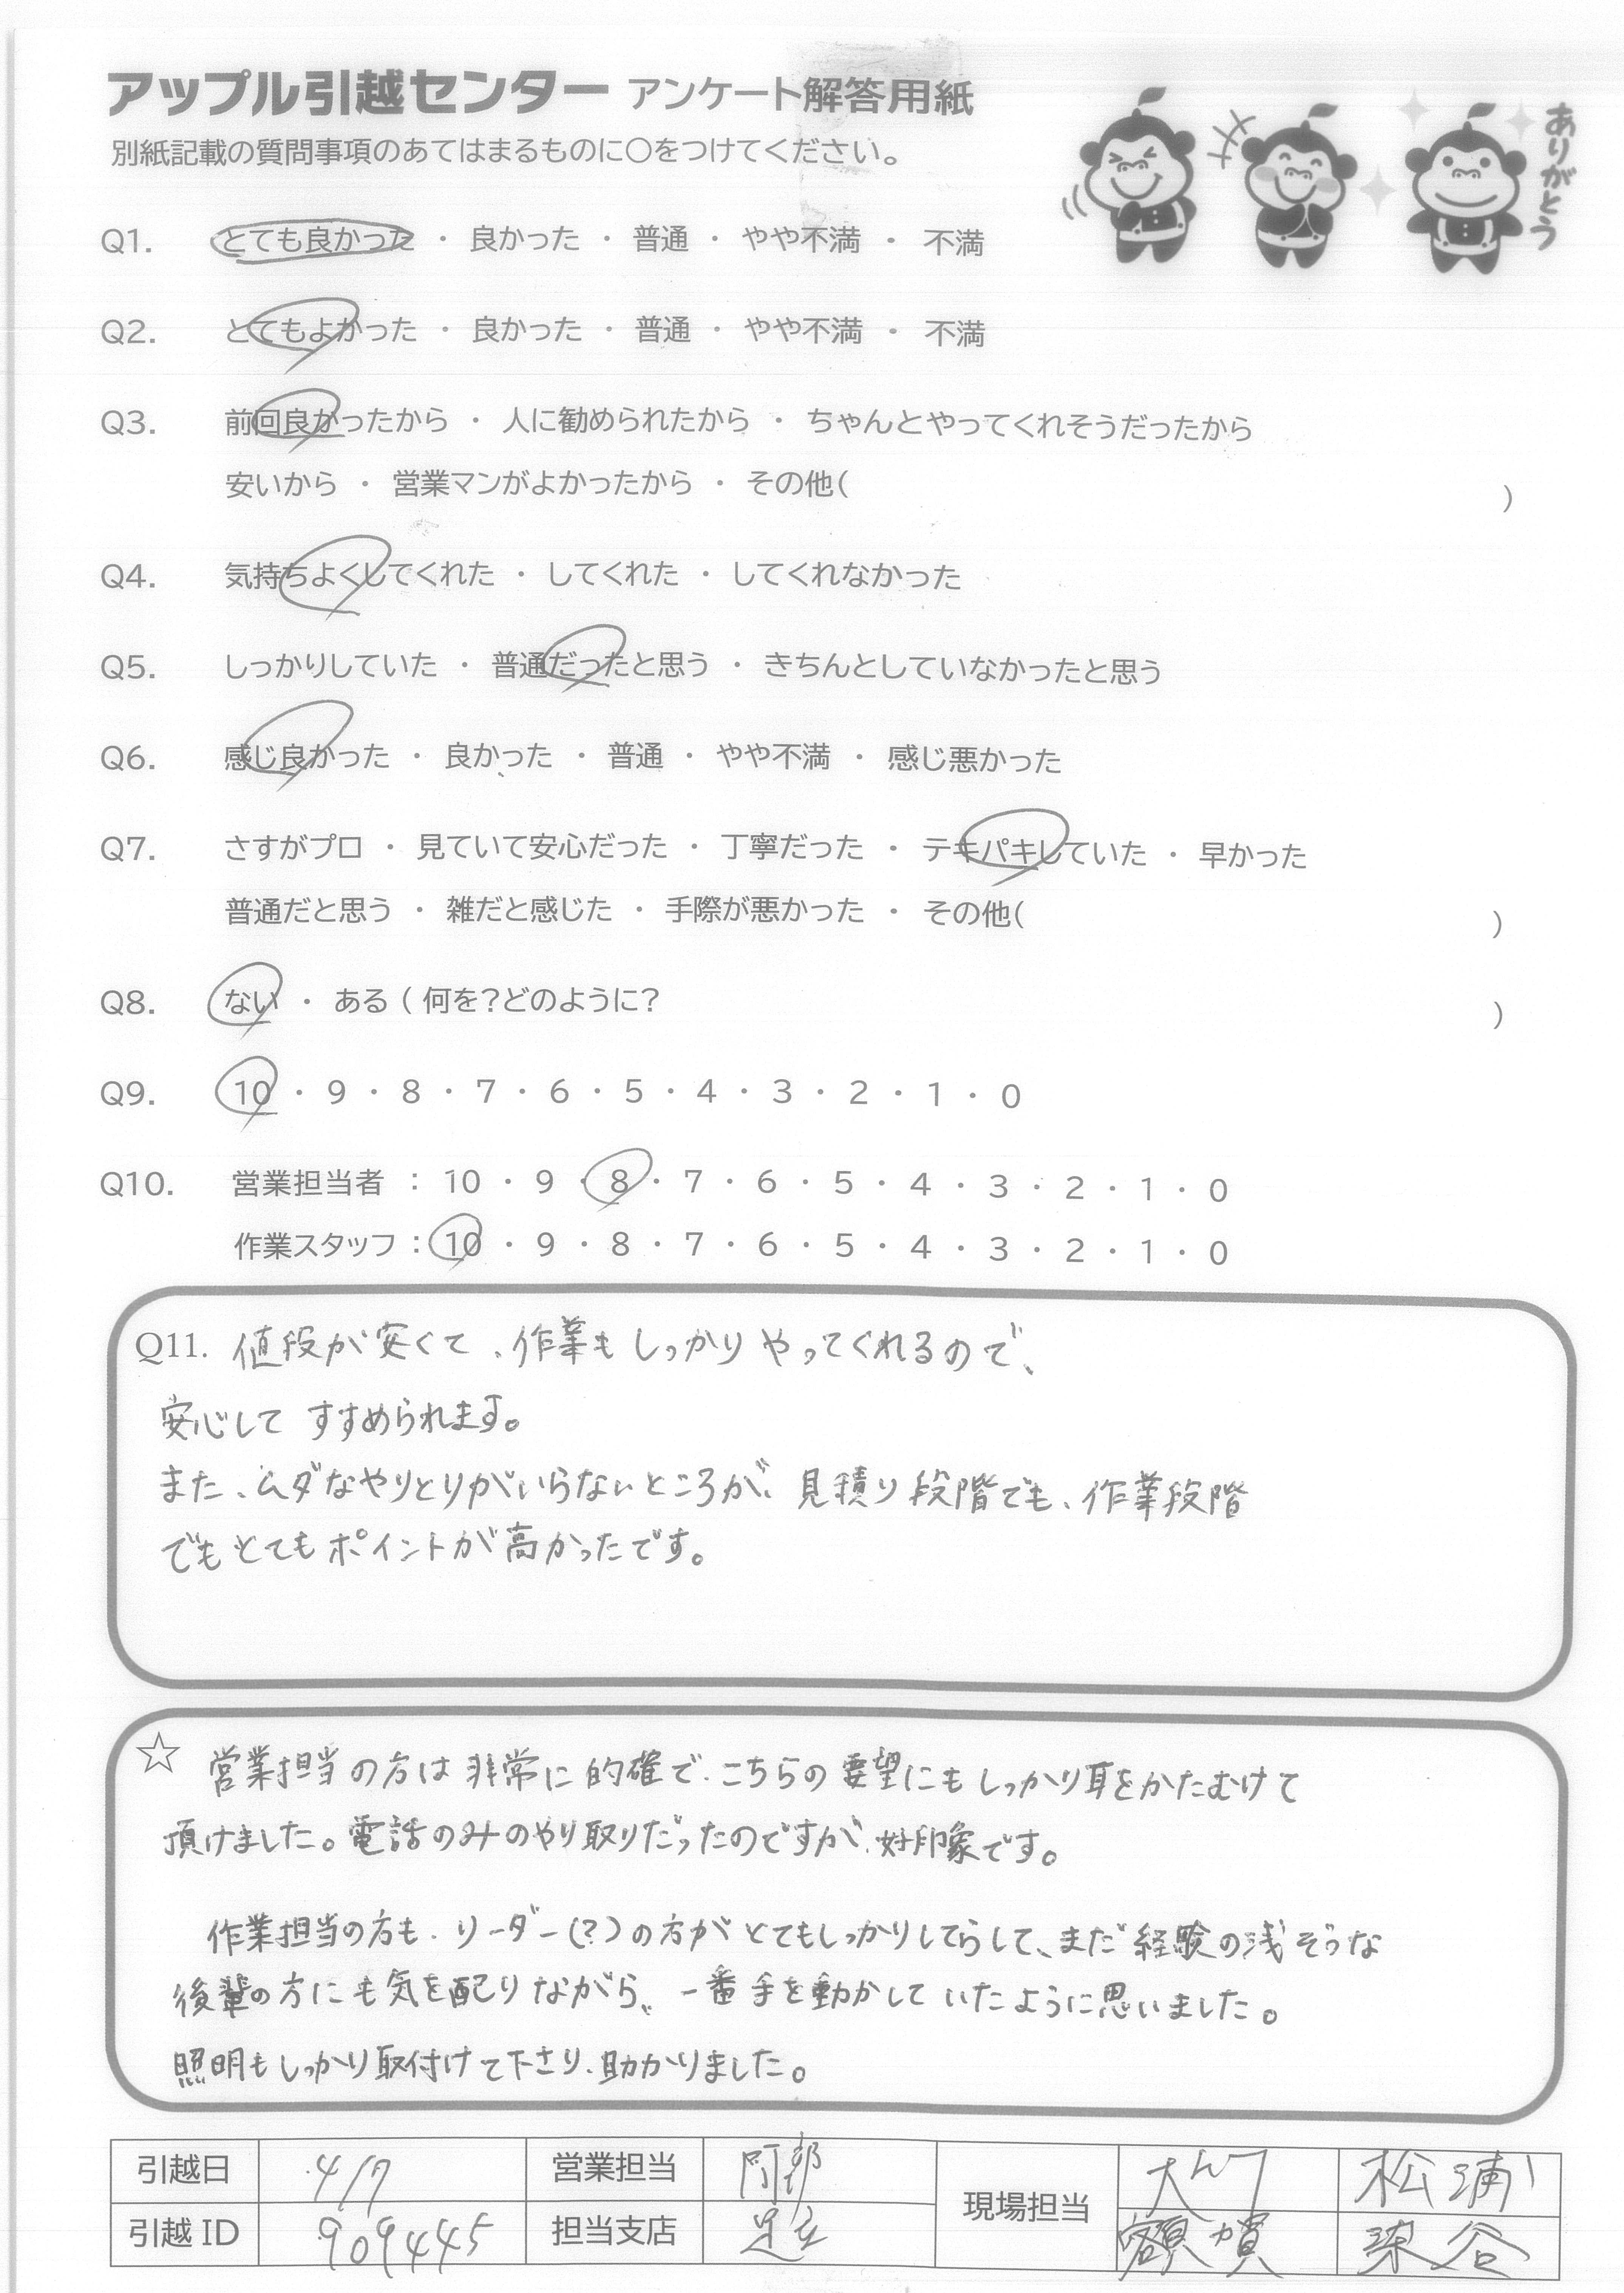 アップル引越センター アンケート解答用紙
別紙記載の質問事項のあてはまるものに〇をつけてください。
ありがとう
Q1. とても良かった ・ 良かった ・ 普通 ・ やや不満 ・ 不満
Q2. とてもよかった ・ 良かった ・ 普通 ・ やや不満 ・ 不満
Q3. 前回良かったから ・ 人に勧められたから ・ ちゃんとやってくれそうだったから
安いから ・ 営業マンがよかったから ・ その他( )
Q4. 気持ちよくしてくれた ・ してくれた ・ してくれなかった
Q5. しっかりしていた ・ 普通だったと思う ・ きちんとしていなかったと思う
Q6. 感じ良かった ・ 良かった ・ 普通 ・ やや不満 ・ 感じ悪かった
Q7. さすがプロ ・ 見ていて安心だった ・ 丁寧だった ・ テキパキしていた ・ 早かった
普通だと思う ・ 雑だと感じた ・ 手際が悪かった ・ その他( )
Q8. ない ・ ある ( 何を?どのように? )
Q9. 10 ・ 9 ・ 8 ・ 7 ・ 6 ・ 5 ・ 4 ・ 3 ・ 2 ・ 1 ・ 0
Q10. 営業担当者 : 10 ・ 9 ・ 8 ・ 7 ・ 6 ・ 5 ・ 4 ・ 3 ・ 2 ・ 1 ・ 0
作業スタッフ : 10 ・ 9 ・ 8 ・ 7 ・ 6 ・ 5 ・ 4 ・ 3 ・ 2 ・ 1 ・ 0
Q11. 値段が安くて、作業もしっかりやってくれるので、
安心してすすめられます。
また、ムダなやりとりがいらないところが、見積り段階でも、作業段階
でもとてもポイントが高かったです。
☆ 営業担当の方は非常に的確で、こちらの要望にもしっかり耳をかたむけて
頂けました。電話のみのやり取りだったのですが、好印象です。
作業担当の方も、リーダー(?)の方がとてもしっかりしてらして、まだ経験の浅そうな
後輩の方にも気を配りながら、一番手を動かしていたように思いました。
照明もしっかり取付けて下さり、助かりました。
引越日 4/7 営業担当 阿部 現場担当 松浦
引越ID 909445 担当支店 足立 額賀 染谷